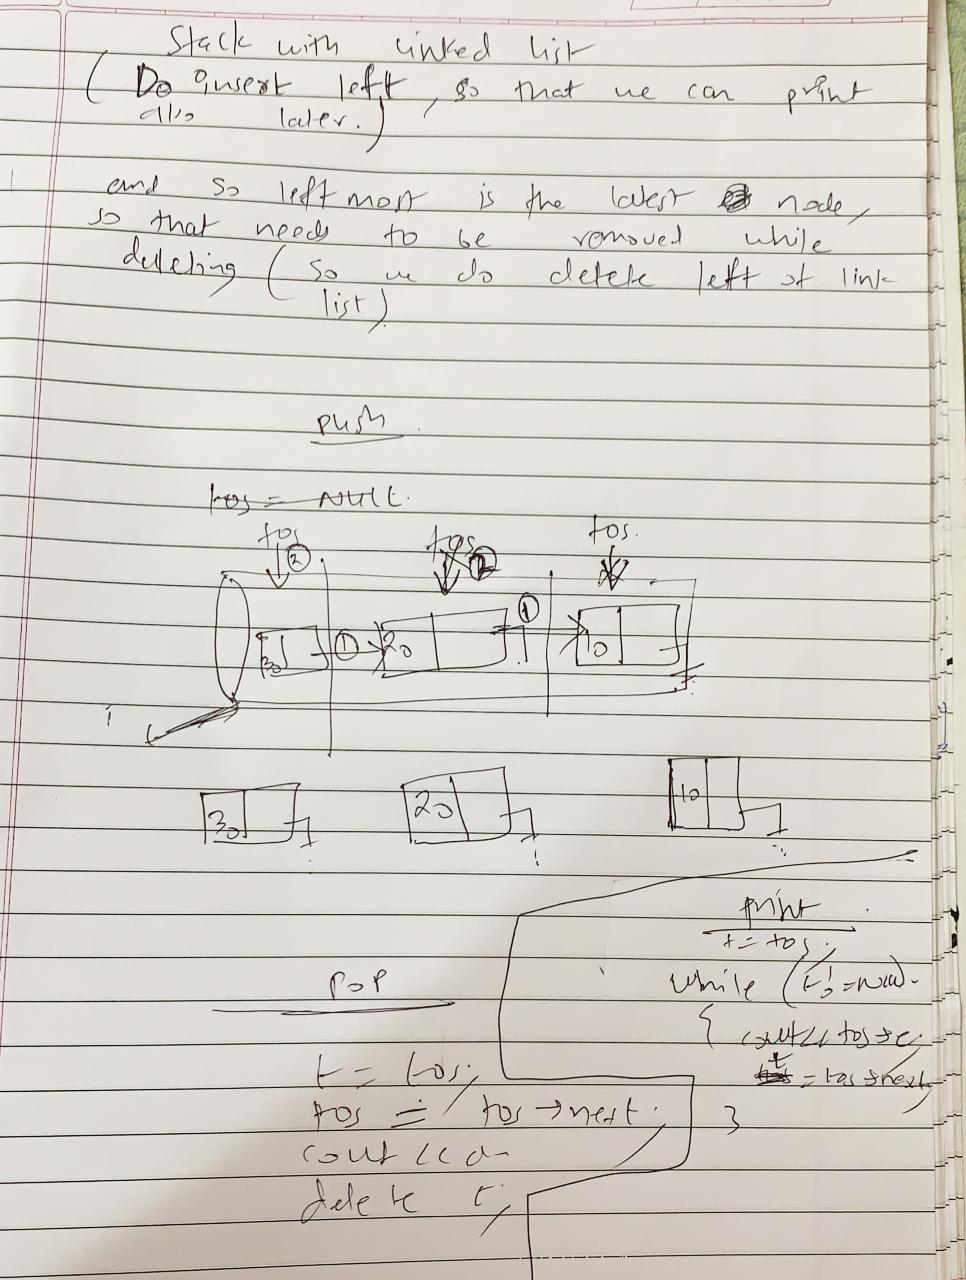 Stack with linked list
(Do insert left, so that we can print
also later.)
and so leftmost is the latest node,
so that needs to be removed while
deleting (so we do delete left of link
list)
push
tos = NULL.
tos tos tos.
② ② ①
30 ① 20 10
30 20 10
print
t = tos;
while (t != NULL)
{ cout << tos → e;
t = tos → next;
}
POP
t = tos;
tos = tos → next;
cout << a
delete t;